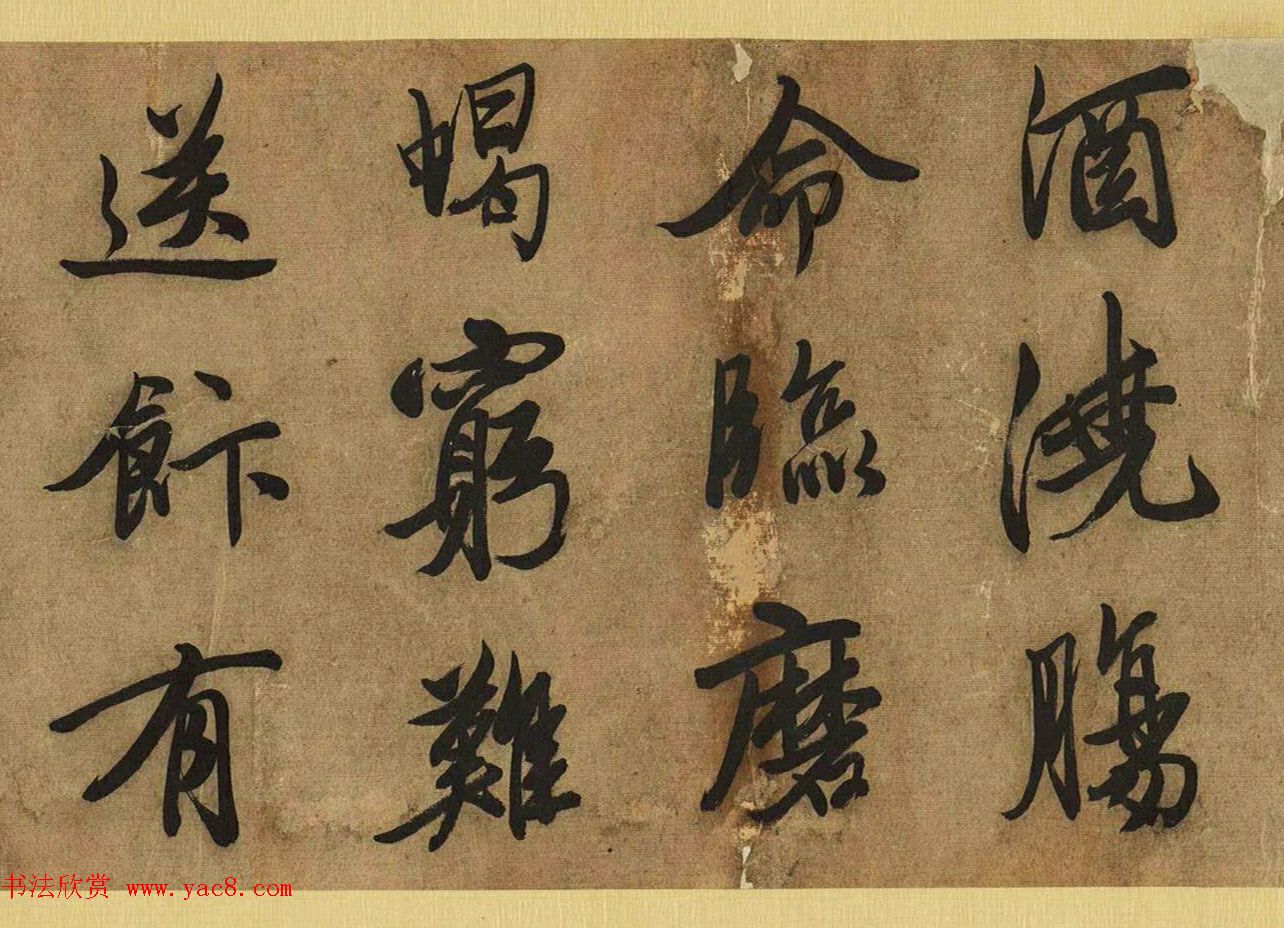 酒澆腸
命臨磨
蝎窮難
送飰有
书法欣赏 www.yac8.com